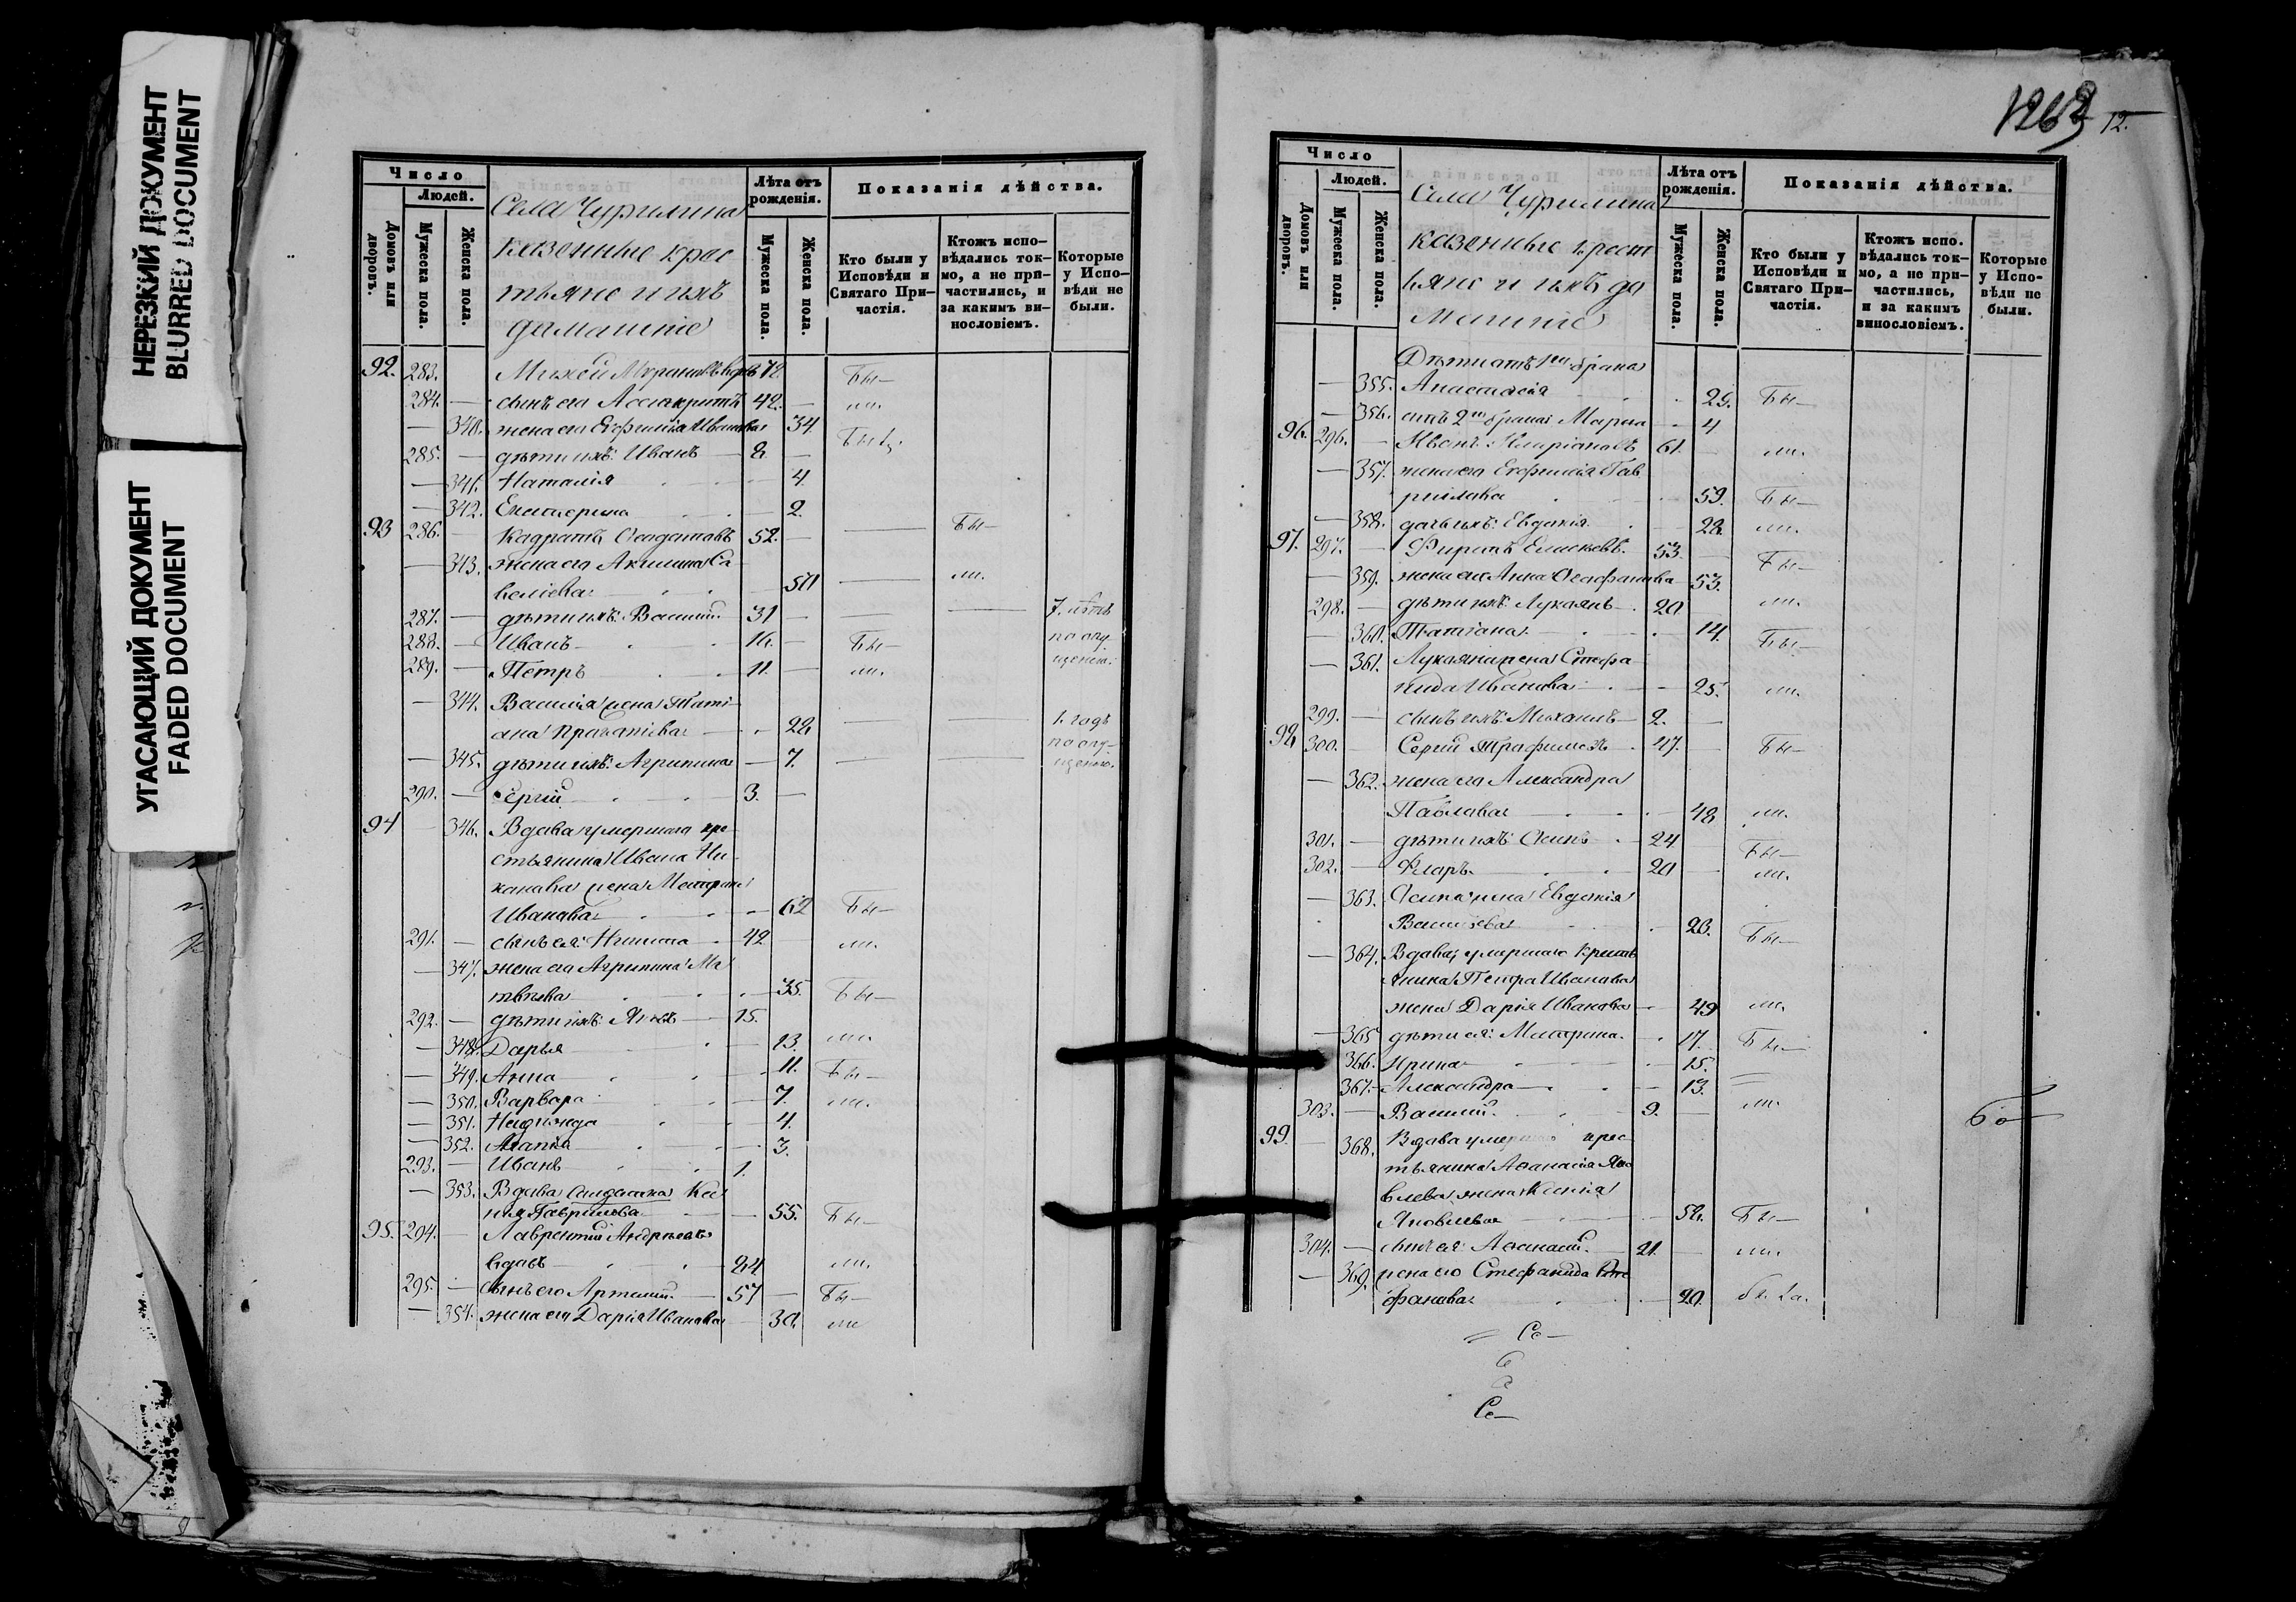 НЕРЕЗКИЙ ДОКУМЕНТ
BLURRED DOCUMENT
УГАСАЮЩИЙ ДОКУМЕНТ
FADED DOCUMENT
Число
Людей.
Домовъ или дворовъ.
Мужеска пола.
Женска пола.
Села Чурилина
казенные крес
тьяне и ихъ
домашніе
Лѣта отъ рожденія.
Мужеска пола.
Женска пола.
Показанія дѣйства.
Кто были у Исповѣди и Святаго При-частія.
Ктожъ испо-вѣдались ток-мо, а не при-частились, и за какимъ ви-нословіемъ.
Которые у Испо-вѣди не были.
92. 283. — вдовъ 72. Бы—
284. — сынъ его 42. — ли.
— 340. жена его Евфимія Иванова 34. Бы
285. — дѣти ихъ: Иванъ — 8. —
— 341. Наталія 4.
— 342. Екатерина 2.
93 286. — Кодратъ 52. — Бы—
— 343. жена его Акилина Са
веліева 50 — ли.
287. — дѣти ихъ: Василій 31 — 7. лѣтъ
288. — Иванъ 16. — Бы— по опу
289. — Петръ 11. — ли. щенію.
— 344. Василія жена Тати
ана Игнатіева 28 — 1. годъ
— 345. дѣти ихъ: Агрипина — 7. по опу-
щенію.
290. — Сергій 3. —
94 — 346. Вдова умершаго кре
стьянина Ивана Ни
канова жена Матрона
Иванова 62 Бы—
291. — сынъ ея: Никита 42 ли.
— 347. жена его Агрипина Ма
твѣева 35. Бы—
292. — дѣти ихъ: Яковъ 15.
— 348. Дарья 13. ли.
— 349. Анна 11. Бы—
— 350. Варвара 7. ли.
— 351. Надежда 4.
— 352. Агапія 3.
293. — Иванъ 1.
— 353. Вдова солдатка Ксе
нія Гаврилова 55. Бы—
95. 294. — Лаврентій Андреевъ
вдовъ 84 ли.
295. — сынъ его Артемій 57 — Бы—
— 354. жена его Дарія Иванова 30. ли
1263 12.
Число
Людей.
Домовъ или дворовъ.
Мужеска пола.
Женска пола.
Села Чурилина
казенные крест
ьяне и ихъ до
машніе
Лѣта отъ рожденія.
Мужеска пола.
Женска пола.
Показанія дѣйства.
Кто были у Исповѣди и Святаго При-частія.
Ктожъ испо-вѣдались ток-мо, а не при-частились, и за какимъ винословіемъ.
Которые у Испо-вѣди не были.
Дѣти отъ 1го брака
— 355. Анастасія 29. Бы—
— 356. отъ 2го брака: Марія 4
96. 296. — Иванъ Иларіоновъ 61. ли.
— 357. жена его Евфимія Гав
рилова 59. Бы—
— 358. дочь ихъ: Евдокія 28. ли.
97. 297. — Фирсъ Елисѣевъ 53. — Бы—
— 359. жена его Анна 53.
298. — дѣти ихъ: Лукіянъ 20 ли.
— 360. Татіана 14. Бы—
— 361. Лукіяна жена Стефа
нида Иванова 25. ли.
299. — сынъ ихъ: Михаилъ 2. —
98 300. — Сергій Трофимовъ 47. — Бы—
— 362. жена его Александра
Павлова 48 ли.
301. — дѣти ихъ: Осипъ 24 Бы—
302. — Флоръ 20 — ли.
— 363. Осипа жена Евдокія
Васильева 23. Бы—
— 364. Вдова, умершаго крестъ
янина Петра Иванова
жена Дарія Иванова 49 ли.
— 365 дѣти ея: Матрона 17. Бы—
366. Ирина 15.
367. Александра 13.
303. — Василій 9. — ли.
99. — 368. Вдова умершаго крес
тьянина Аѳанасія Яко
влева жена Ксенія
Яковлева 52. Бы—
304. — сынъ ея: Аѳанасій 21. — ли.
— 369. жена его Стефанида Сте
фанова 20.